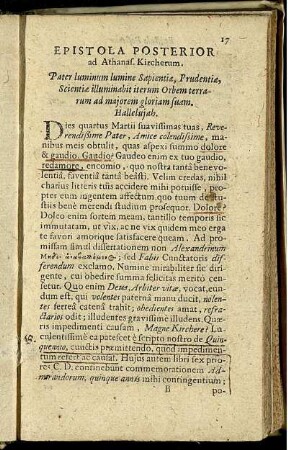 17
EPISTOLA POSTERIOR
ad Athanas. Kircherum.
Pater luminum lumine Sapientiæ, Prudentiæ,
Scientiæ illuminabit iterum Orbem terra-
rum ad majorem gloriam suam.
Hallelujah.
Dies quartus Martii suavissimas tuas, Reve-
rendissime Pater, Amice colendissime, ma-
nibus meis obtulit, quas aspexi summo dolore
& gaudio. Gaudio? Gaudeo enim ex tuo gaudio,
redamore, encomio, quo nostra tanta benevo-
lentiâ, faventiâ tanta beasti. Velim credas, nihil
charius litteris tuis accidere mihi potuisse, pro-
pter eum ingentem affectum quo tuum de
stiis benè merendi studium prosequor. Dolore?
Doleo enim sortem meam, tantillo temporis sic
immutatam, ut vix, ac ne vix quidem meo erga
te favori amorique satisfacere queam. Ad pro-
missam simul dissertationem non Alexandrinum
sed Fabii Cunctatoris dif-
ferendum exclamo. Numine mirabiliter sic diri-
gente, cui Obedire summa felicitas meritò cense-
tur. Quo enim Deus, Arbiter vitæ, vocat, eun-
dum est, qui volentes paterna manu ducit, nolen-
tes ferreâ catenâ trahit; obedientes amat, refra-
ctarios odit; illudentes gravissimè illudens Quæ-
ris impedimenti causam, Magne Kirchere? Lu-
culentissimè ea patescet è scripto nostro de Quin-
quennio, cunctis præmittendo, quod impedimen-
tum refert ac causat. Hujus autem libri sex prio-
res C. D. continebunt commemorationem Ad-
mirandorum, quinque annis mihi contingentium;
B
po-